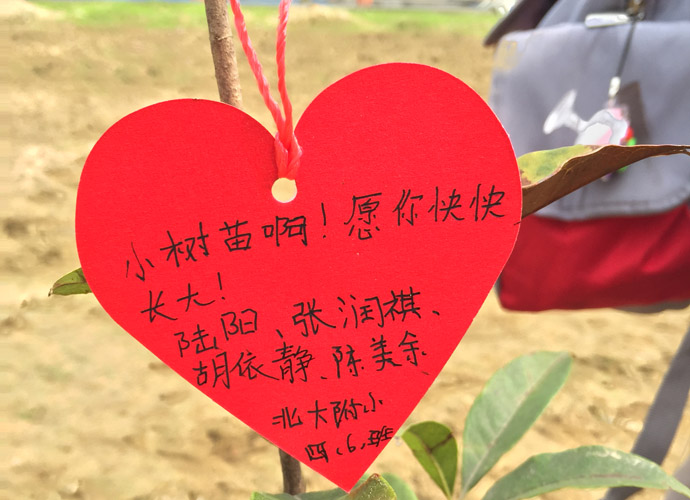 小树苗啊！愿你快快
长大！
陆阳、张润祺、
胡依静、陈美余
北大附小
四.6.班